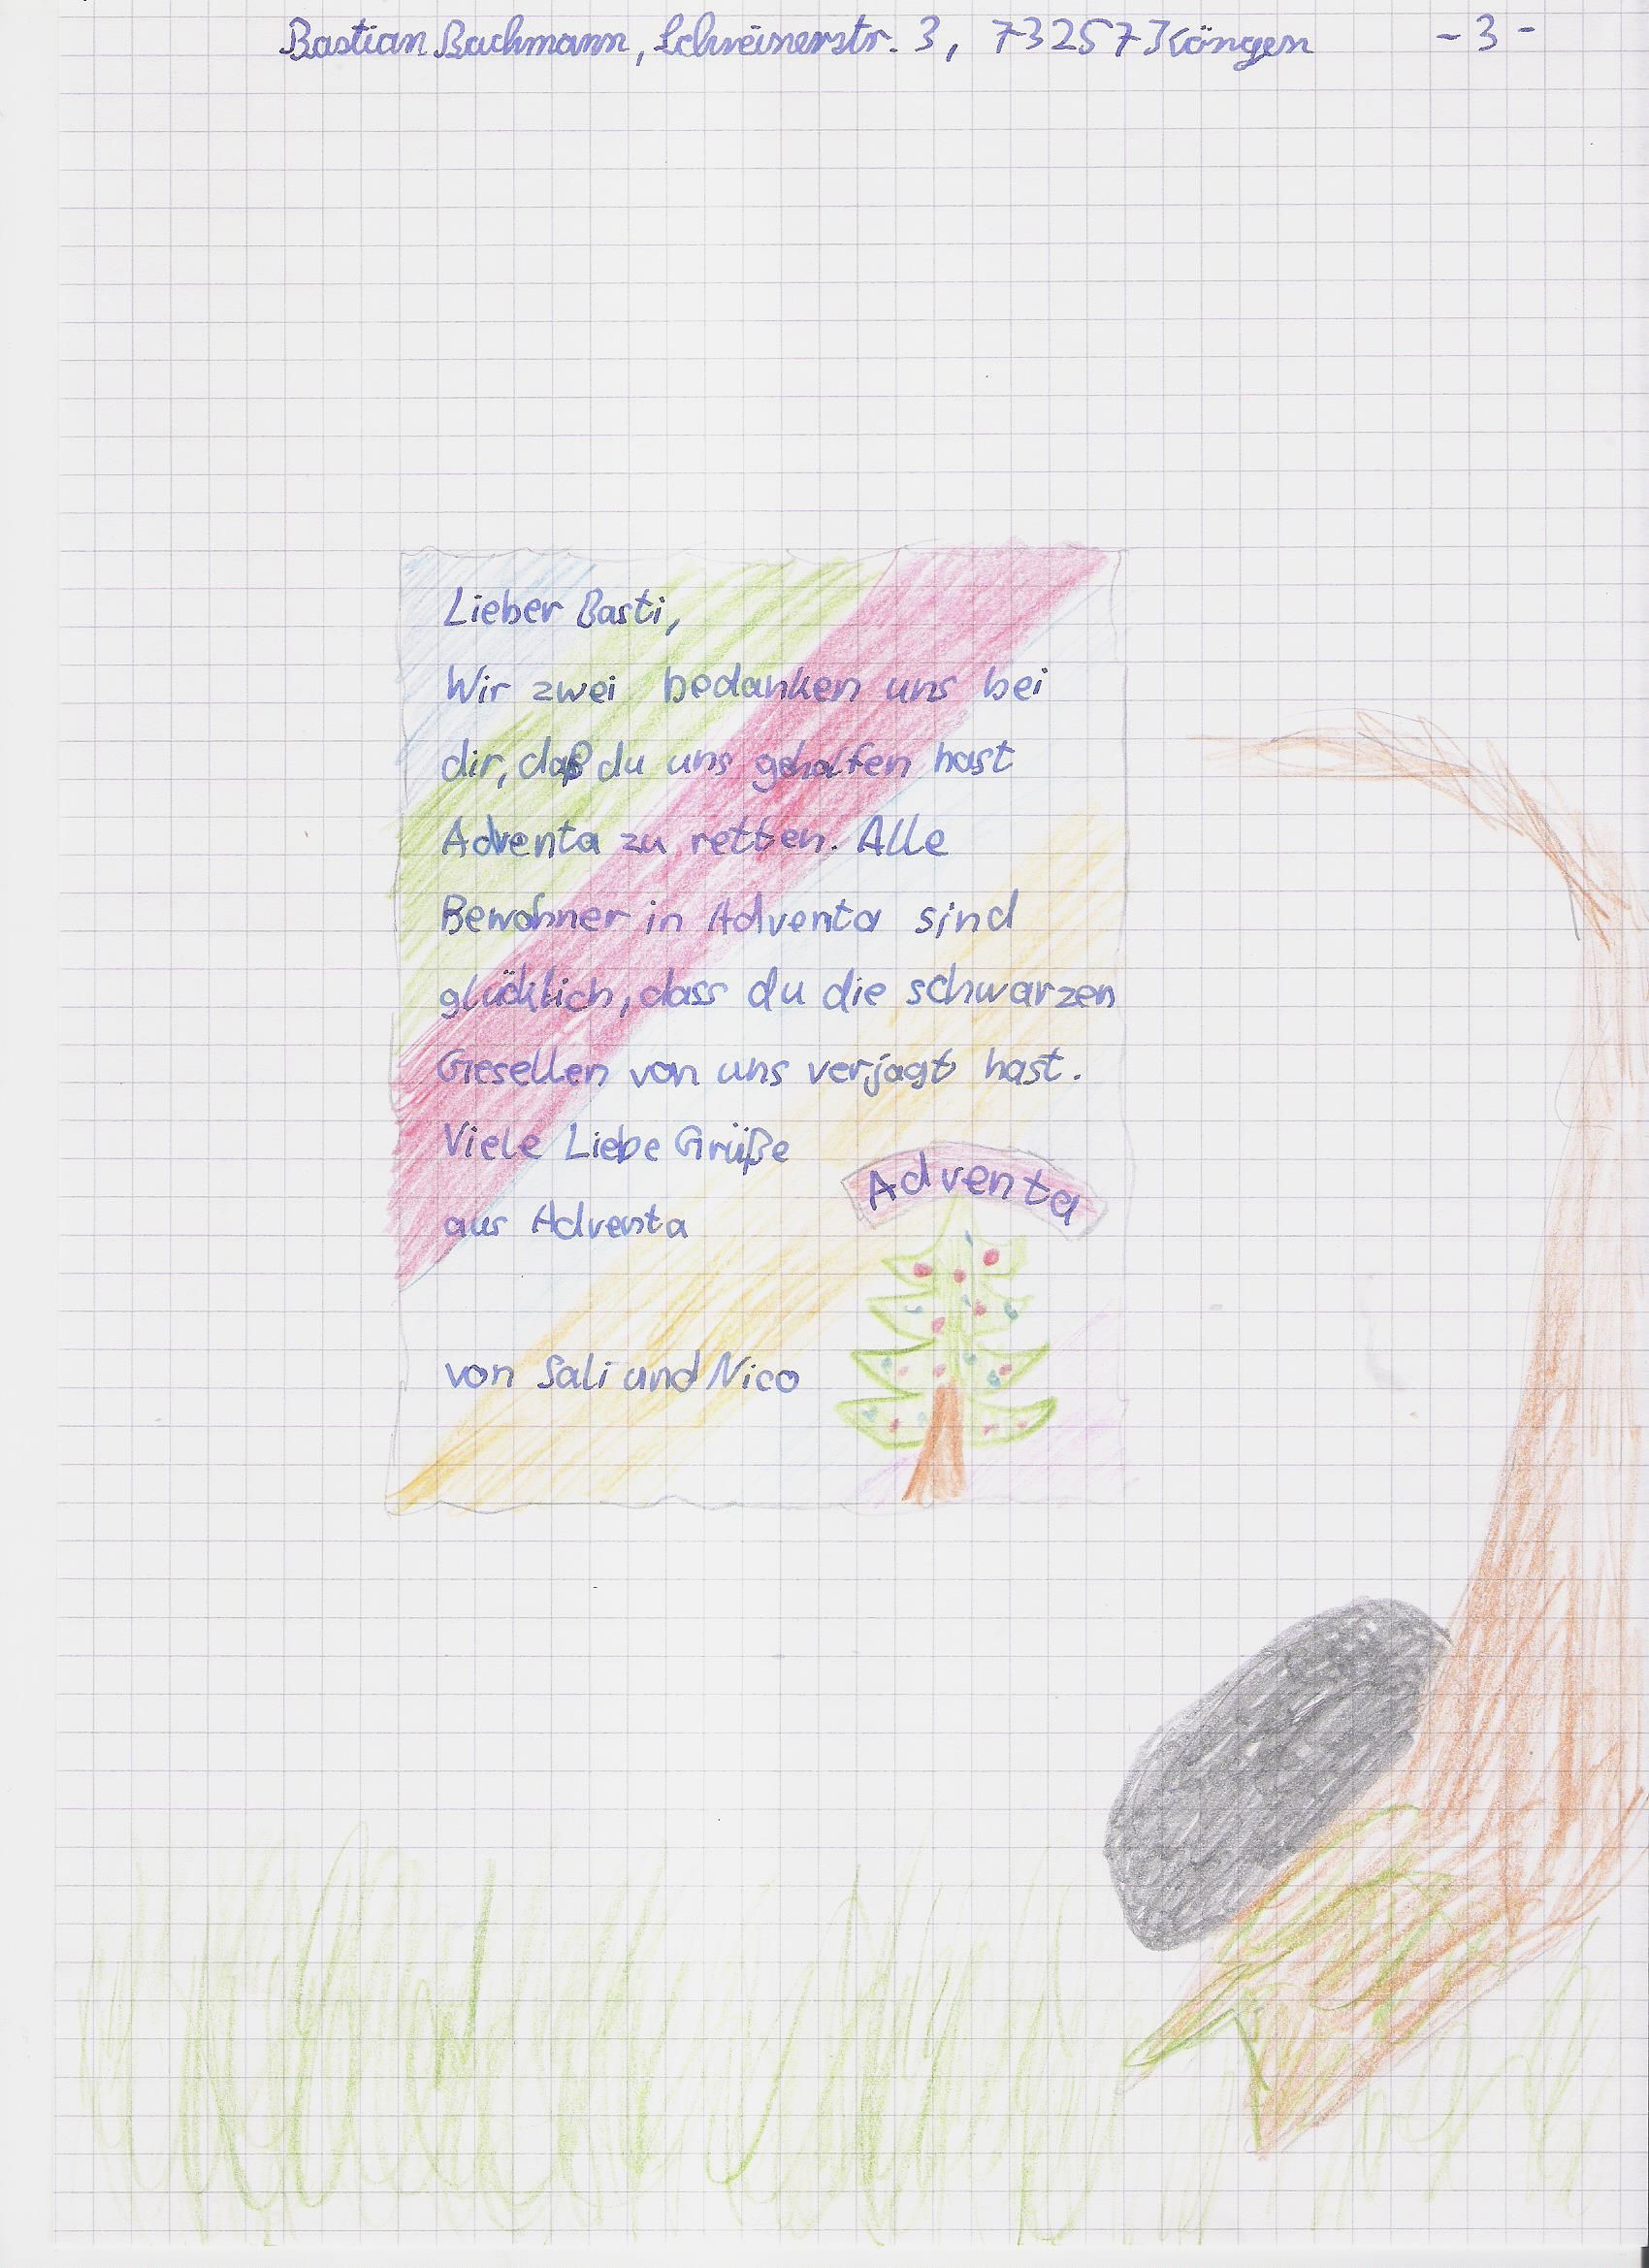 Bastian Bachmann, Schreinerstr. 3, 73257 Köngen -3-
Lieber Basti,
Wir zwei bedanken uns bei
dir, daß du uns geholfen hast
Adventa zu retten. Alle
Bewohner in Adventa sind
glücklich, dass du die schwarzen
Gesellen von uns verjagt hast.
Viele Liebe Grüße
aus Adventa
Adventa
von Sali und Nico